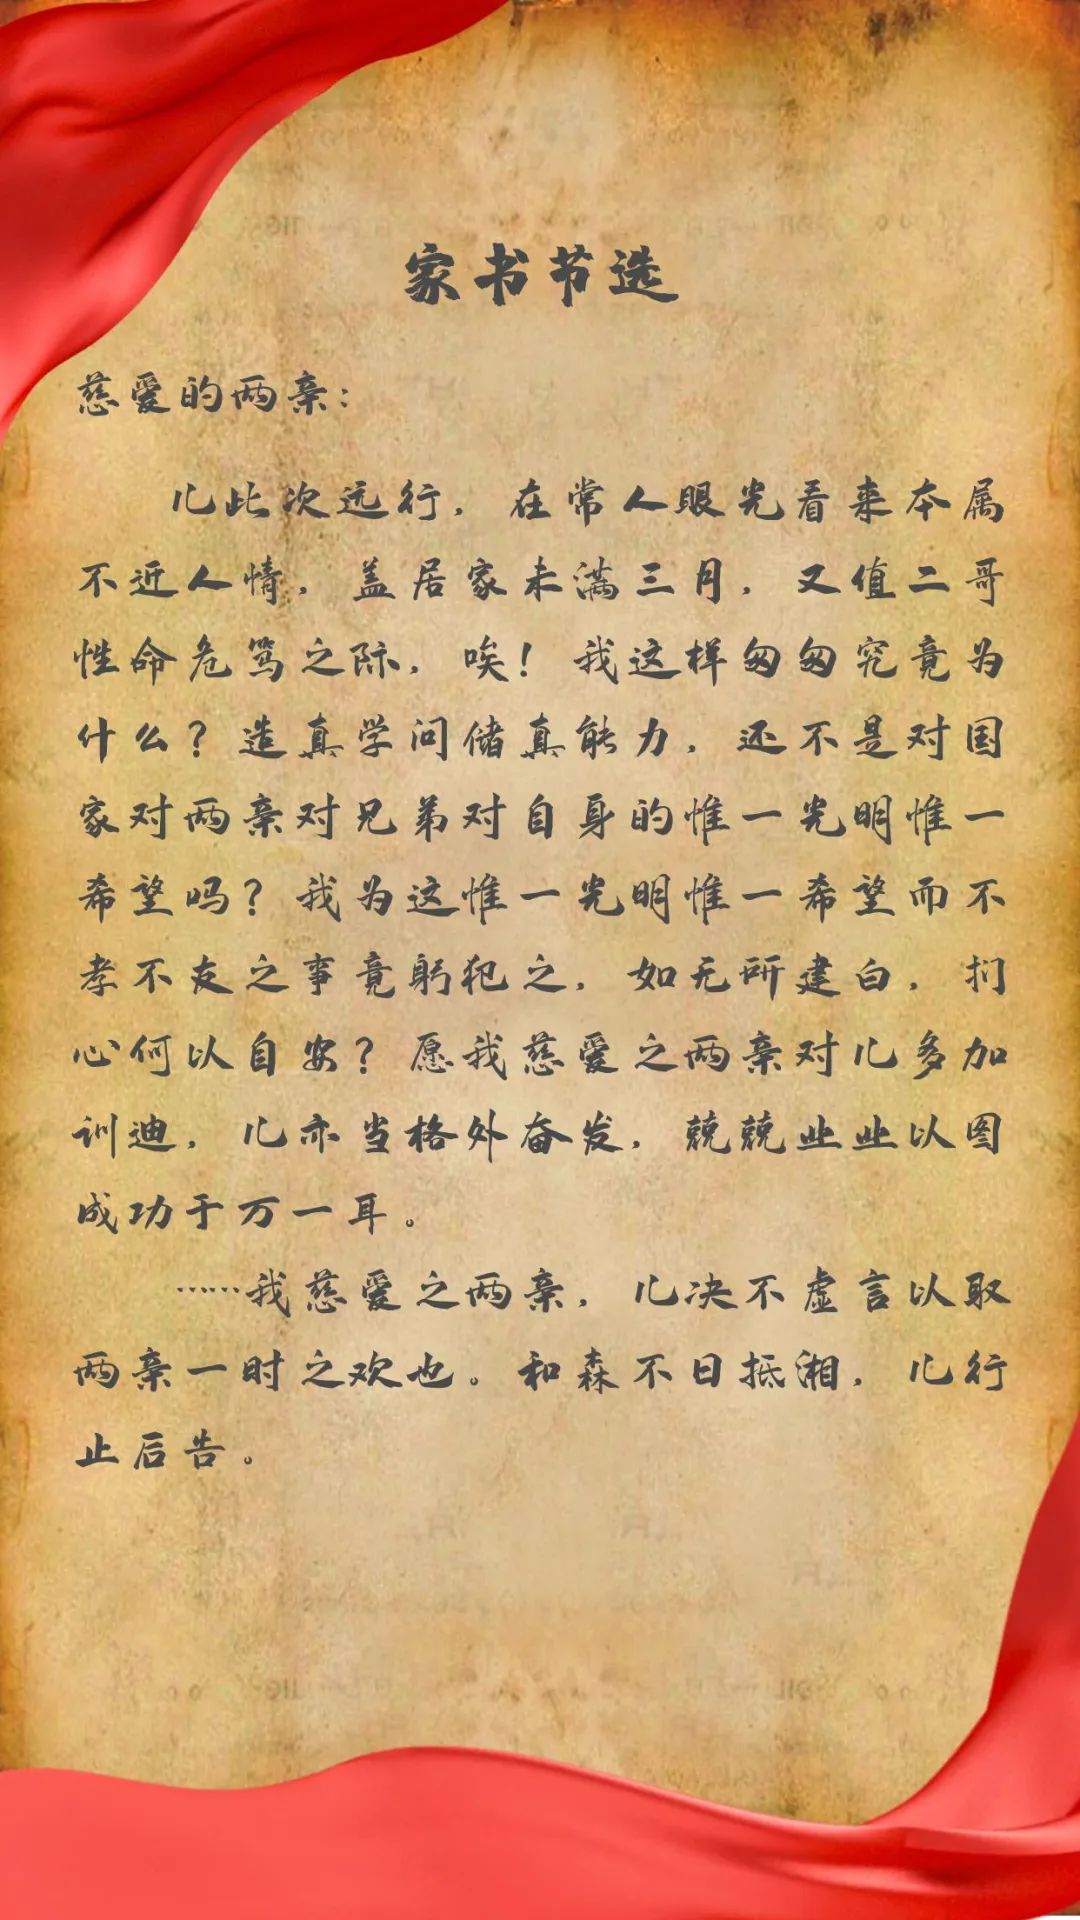 家书节选
慈爱的两亲：
儿此次远行，在常人眼光看来本属
不近人情，盖居家未满三月，又值二哥
性命危笃之际，唉！我这样匆匆究竟为
什么？造真学问储真能力，还不是对国
家对两亲对兄弟对自身的惟一光明惟一
希望吗？我为这惟一光明惟一希望而不
孝不友之事竟躬犯之，如无所建白，扪
心何以自安？愿我慈爱之两亲对儿多加
训迪，儿亦当格外奋发，兢兢业业以图
成功于万一耳。
……我慈爱之两亲，儿决不虚言以取
两亲一时之欢也。和森不日抵湘，儿行
止后告。